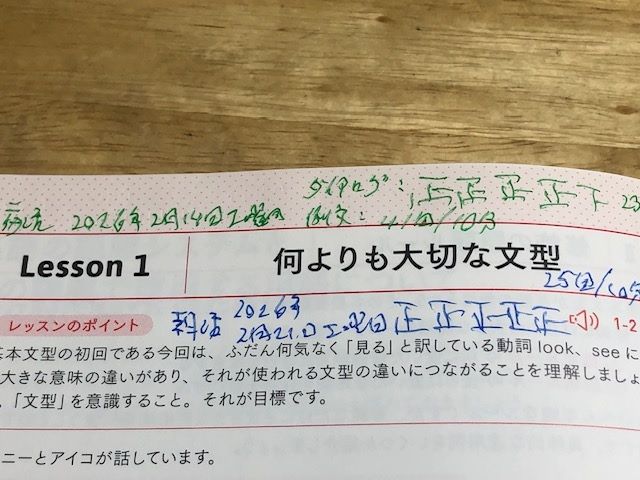 ダイアログ: 正正正正下 23
音読 2026年2月14日土曜日 例文: 41回/10分
Lesson 1 何よりも大切な文型
25回/10分
レッスンのポイント 2026年
2月21日土曜日 正正正正正 1-2
基本文型の初回である今回は、ふだん何気なく「見る」と訳している動詞 look、see に
大きな意味の違いがあり、それが使われる文型の違いにつながることを理解しましょ
「文型」を意識すること。それが目標です。
ニーとアイコが話しています。